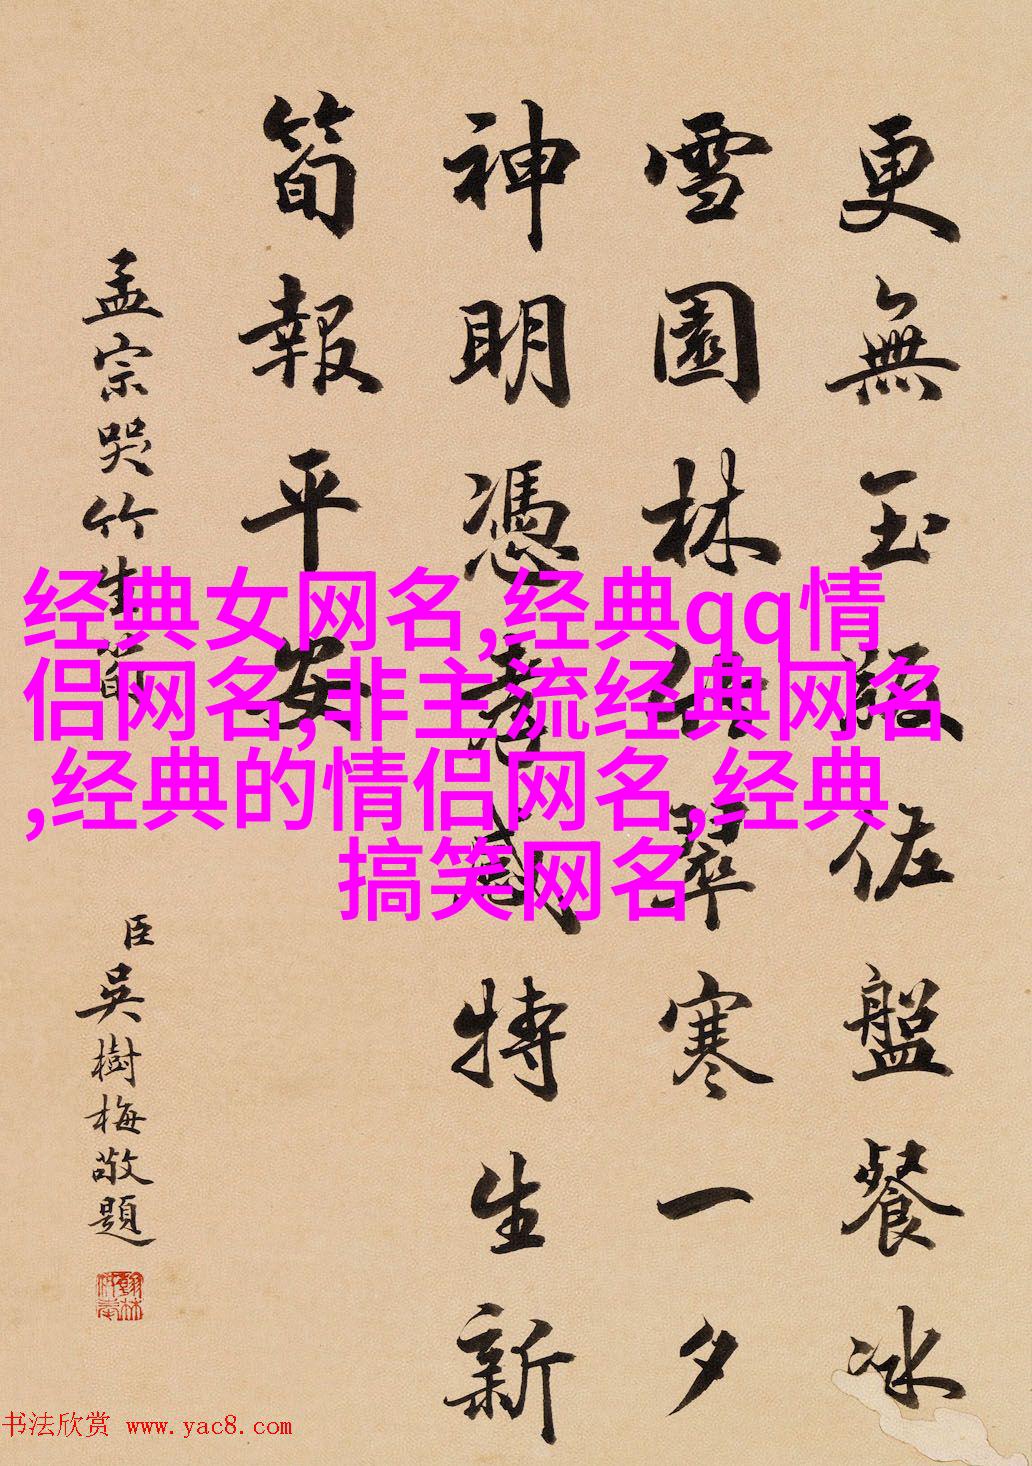 更無玉版佐盤餐冰
雪園林供翠寒一夕
神明憑孝感特生新
筍報平安
孟宗哭竹生筍
臣吳樹梅敬題
翰林
经典女网名,经典qq情
侣网名,非主流经典网名
,经典的情侣网名,经典
搞笑网名
书法欣赏 www.yac8.com